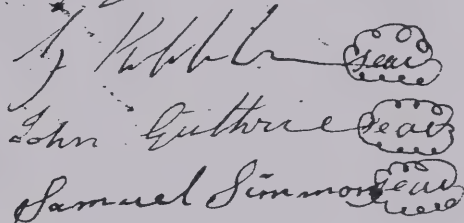 seal
John Guthrie seal
Samuel Simmons seal